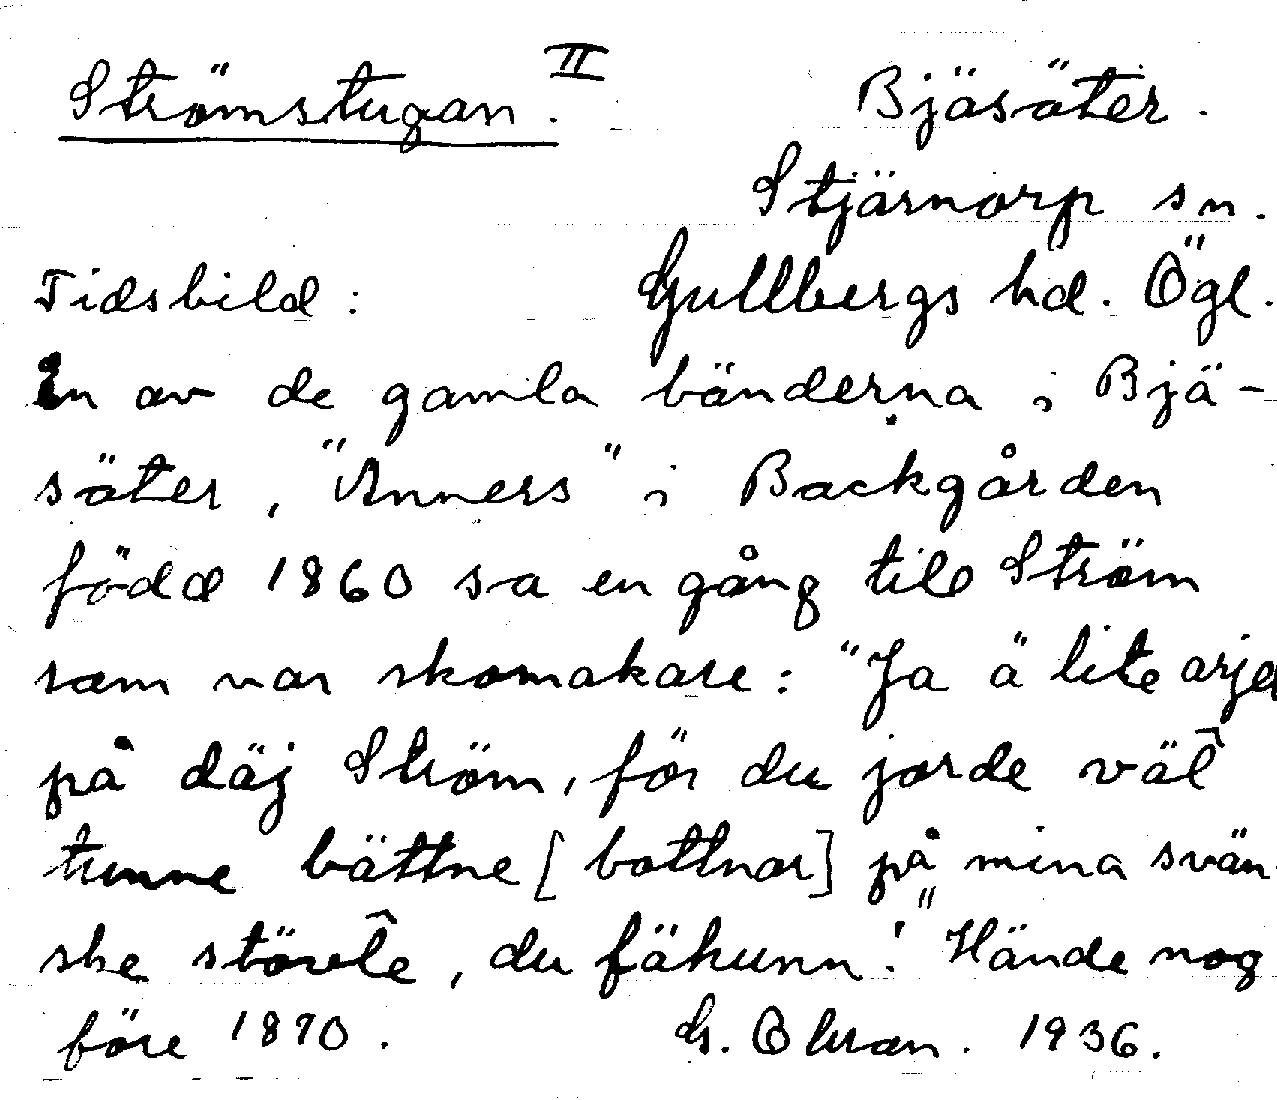 Strömstugan. II Bjäsäter.
Stjärnorp sn.
Tidsbild: Gullbergs hd. Ögl.
En av de gamla bönderna i Bjä-
säter, "Anners" i Backgården
född 1860 sa en gång till Ström
som var skomakare: "Ja ä lite arja
på däj Ström, för du jorde väl̂
tunne bättne [bottnar] på mina svän-
ske störel̂e, du fähunn!" Hände nog
före 1890. G. Olsson. 1936.